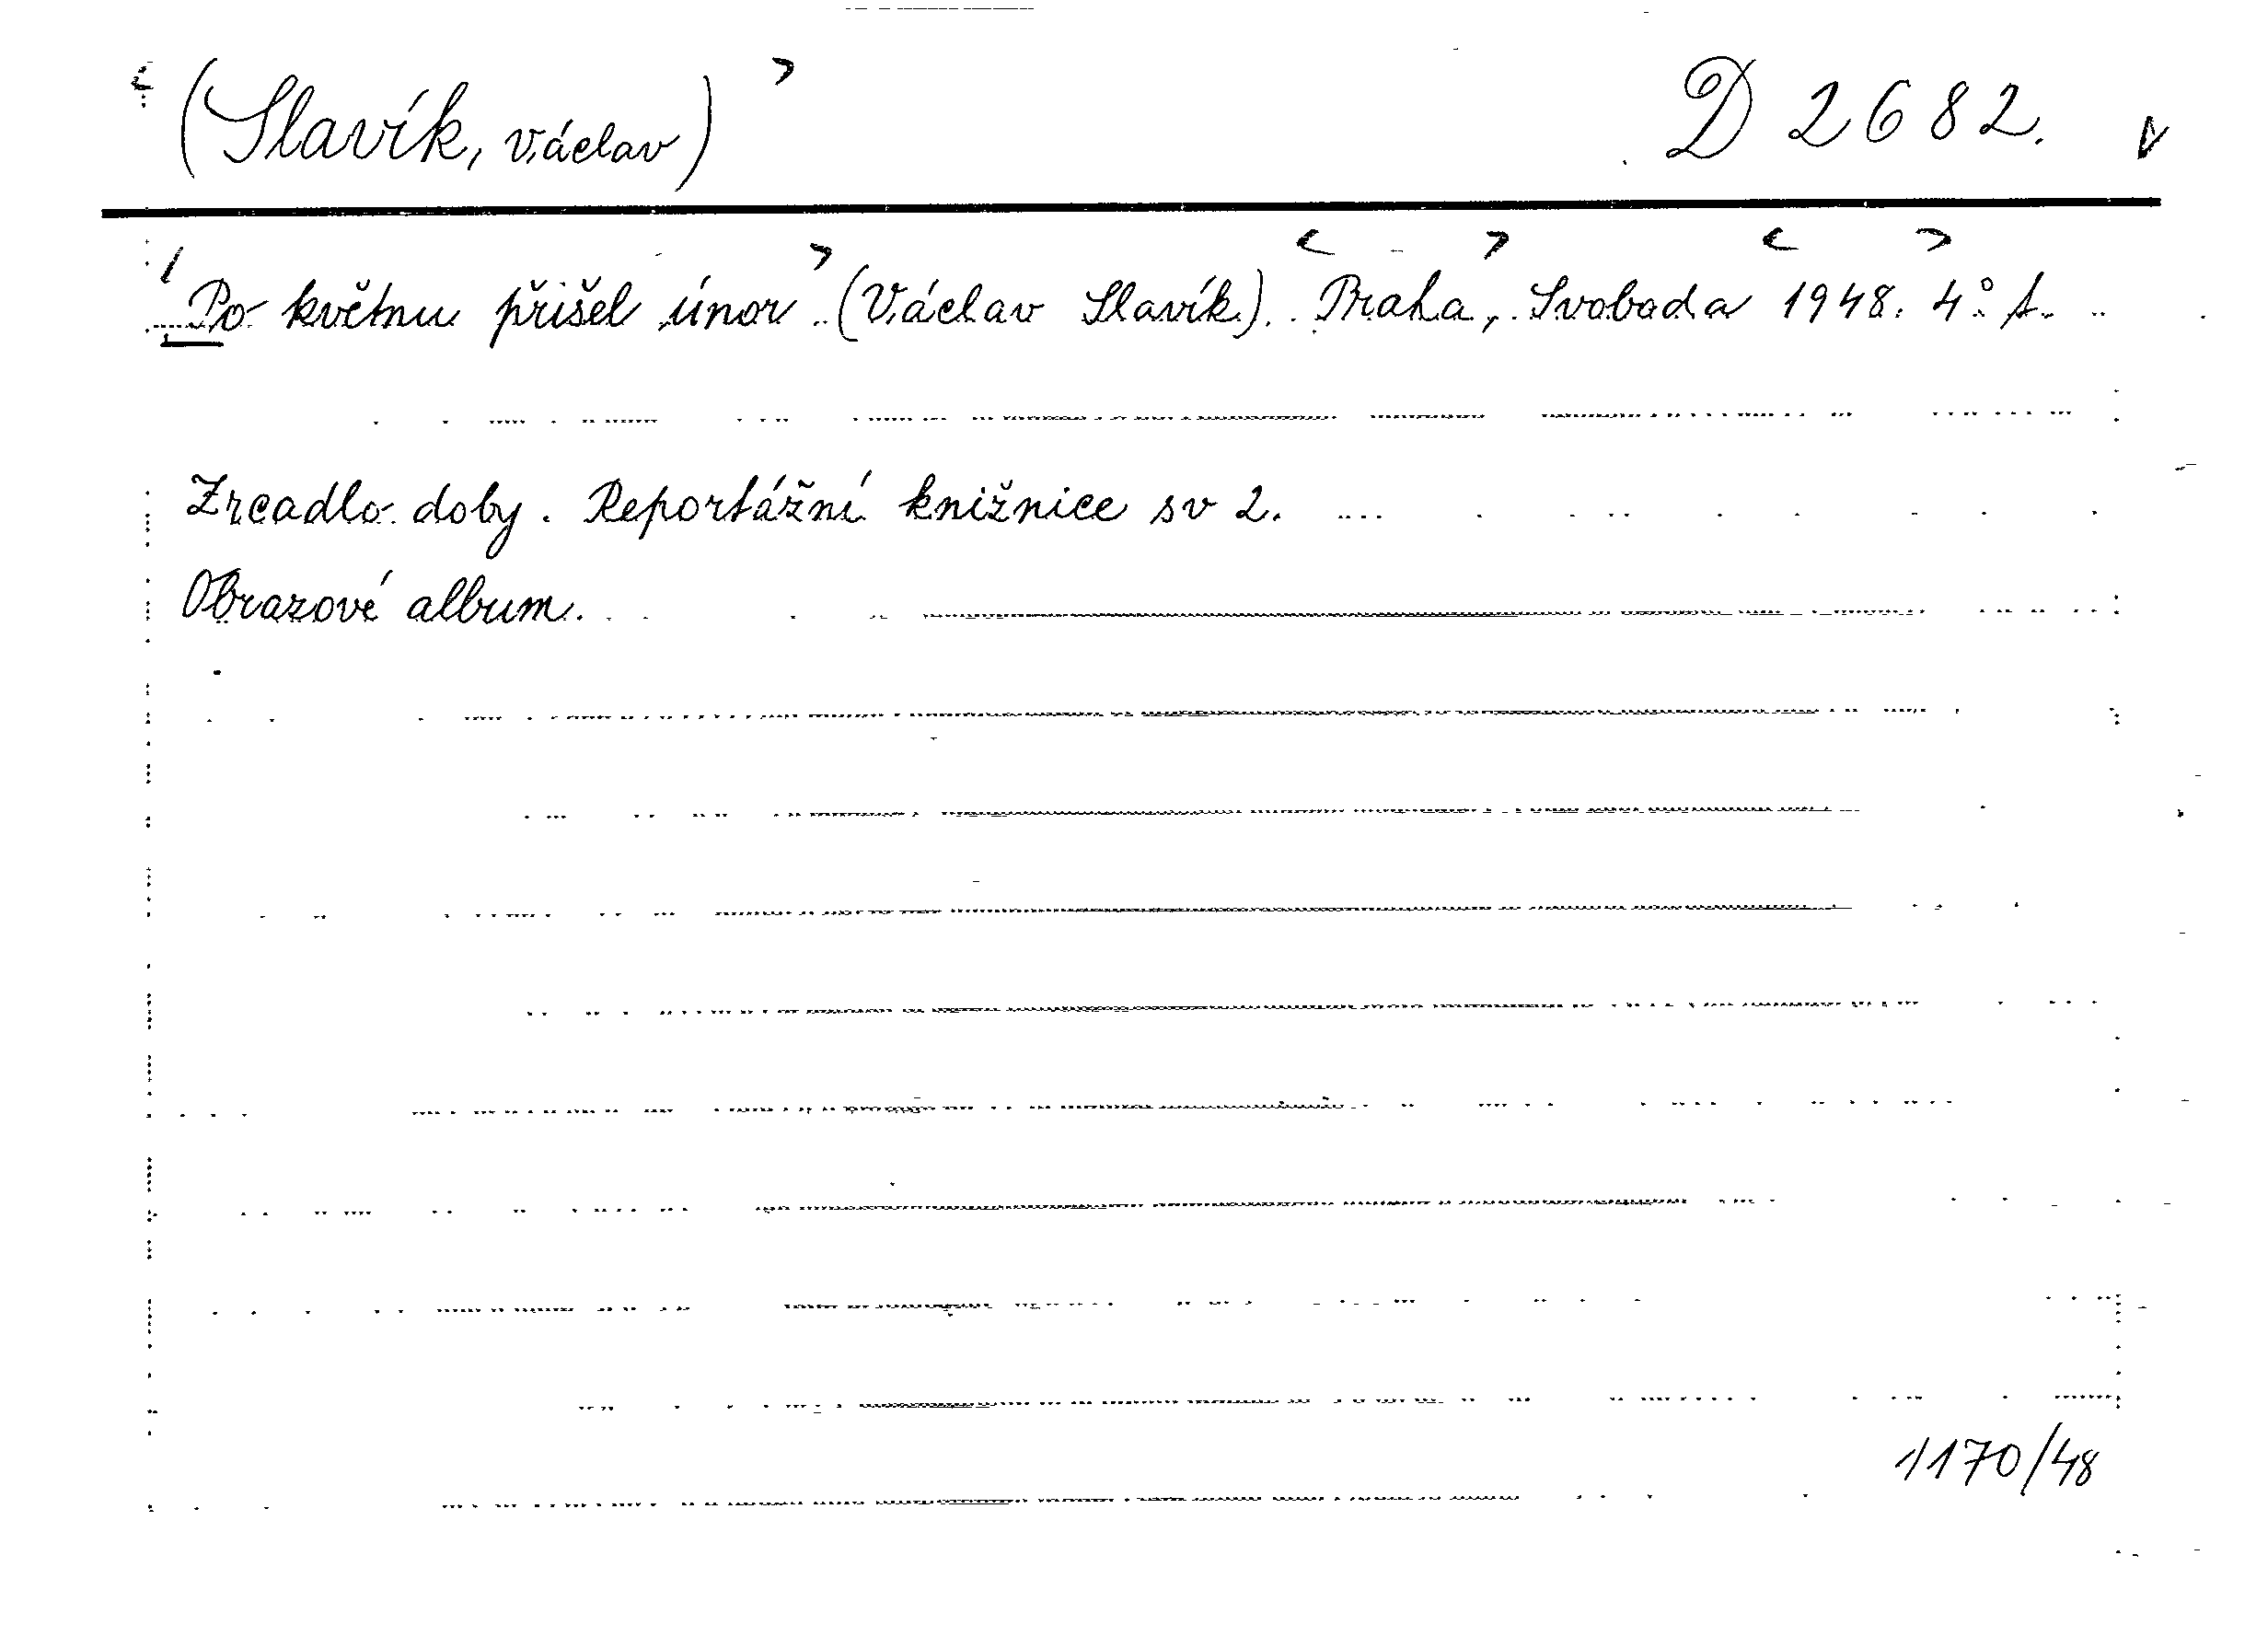 (Slavík, Václav) D 2682.
Po květnu přišel únor (Václav Slavík). Praha, Svoboda 1948. 4° s.
Zrcadlo doby. Reportážní knižnice sv 2.
Obrazové album.
1170/48